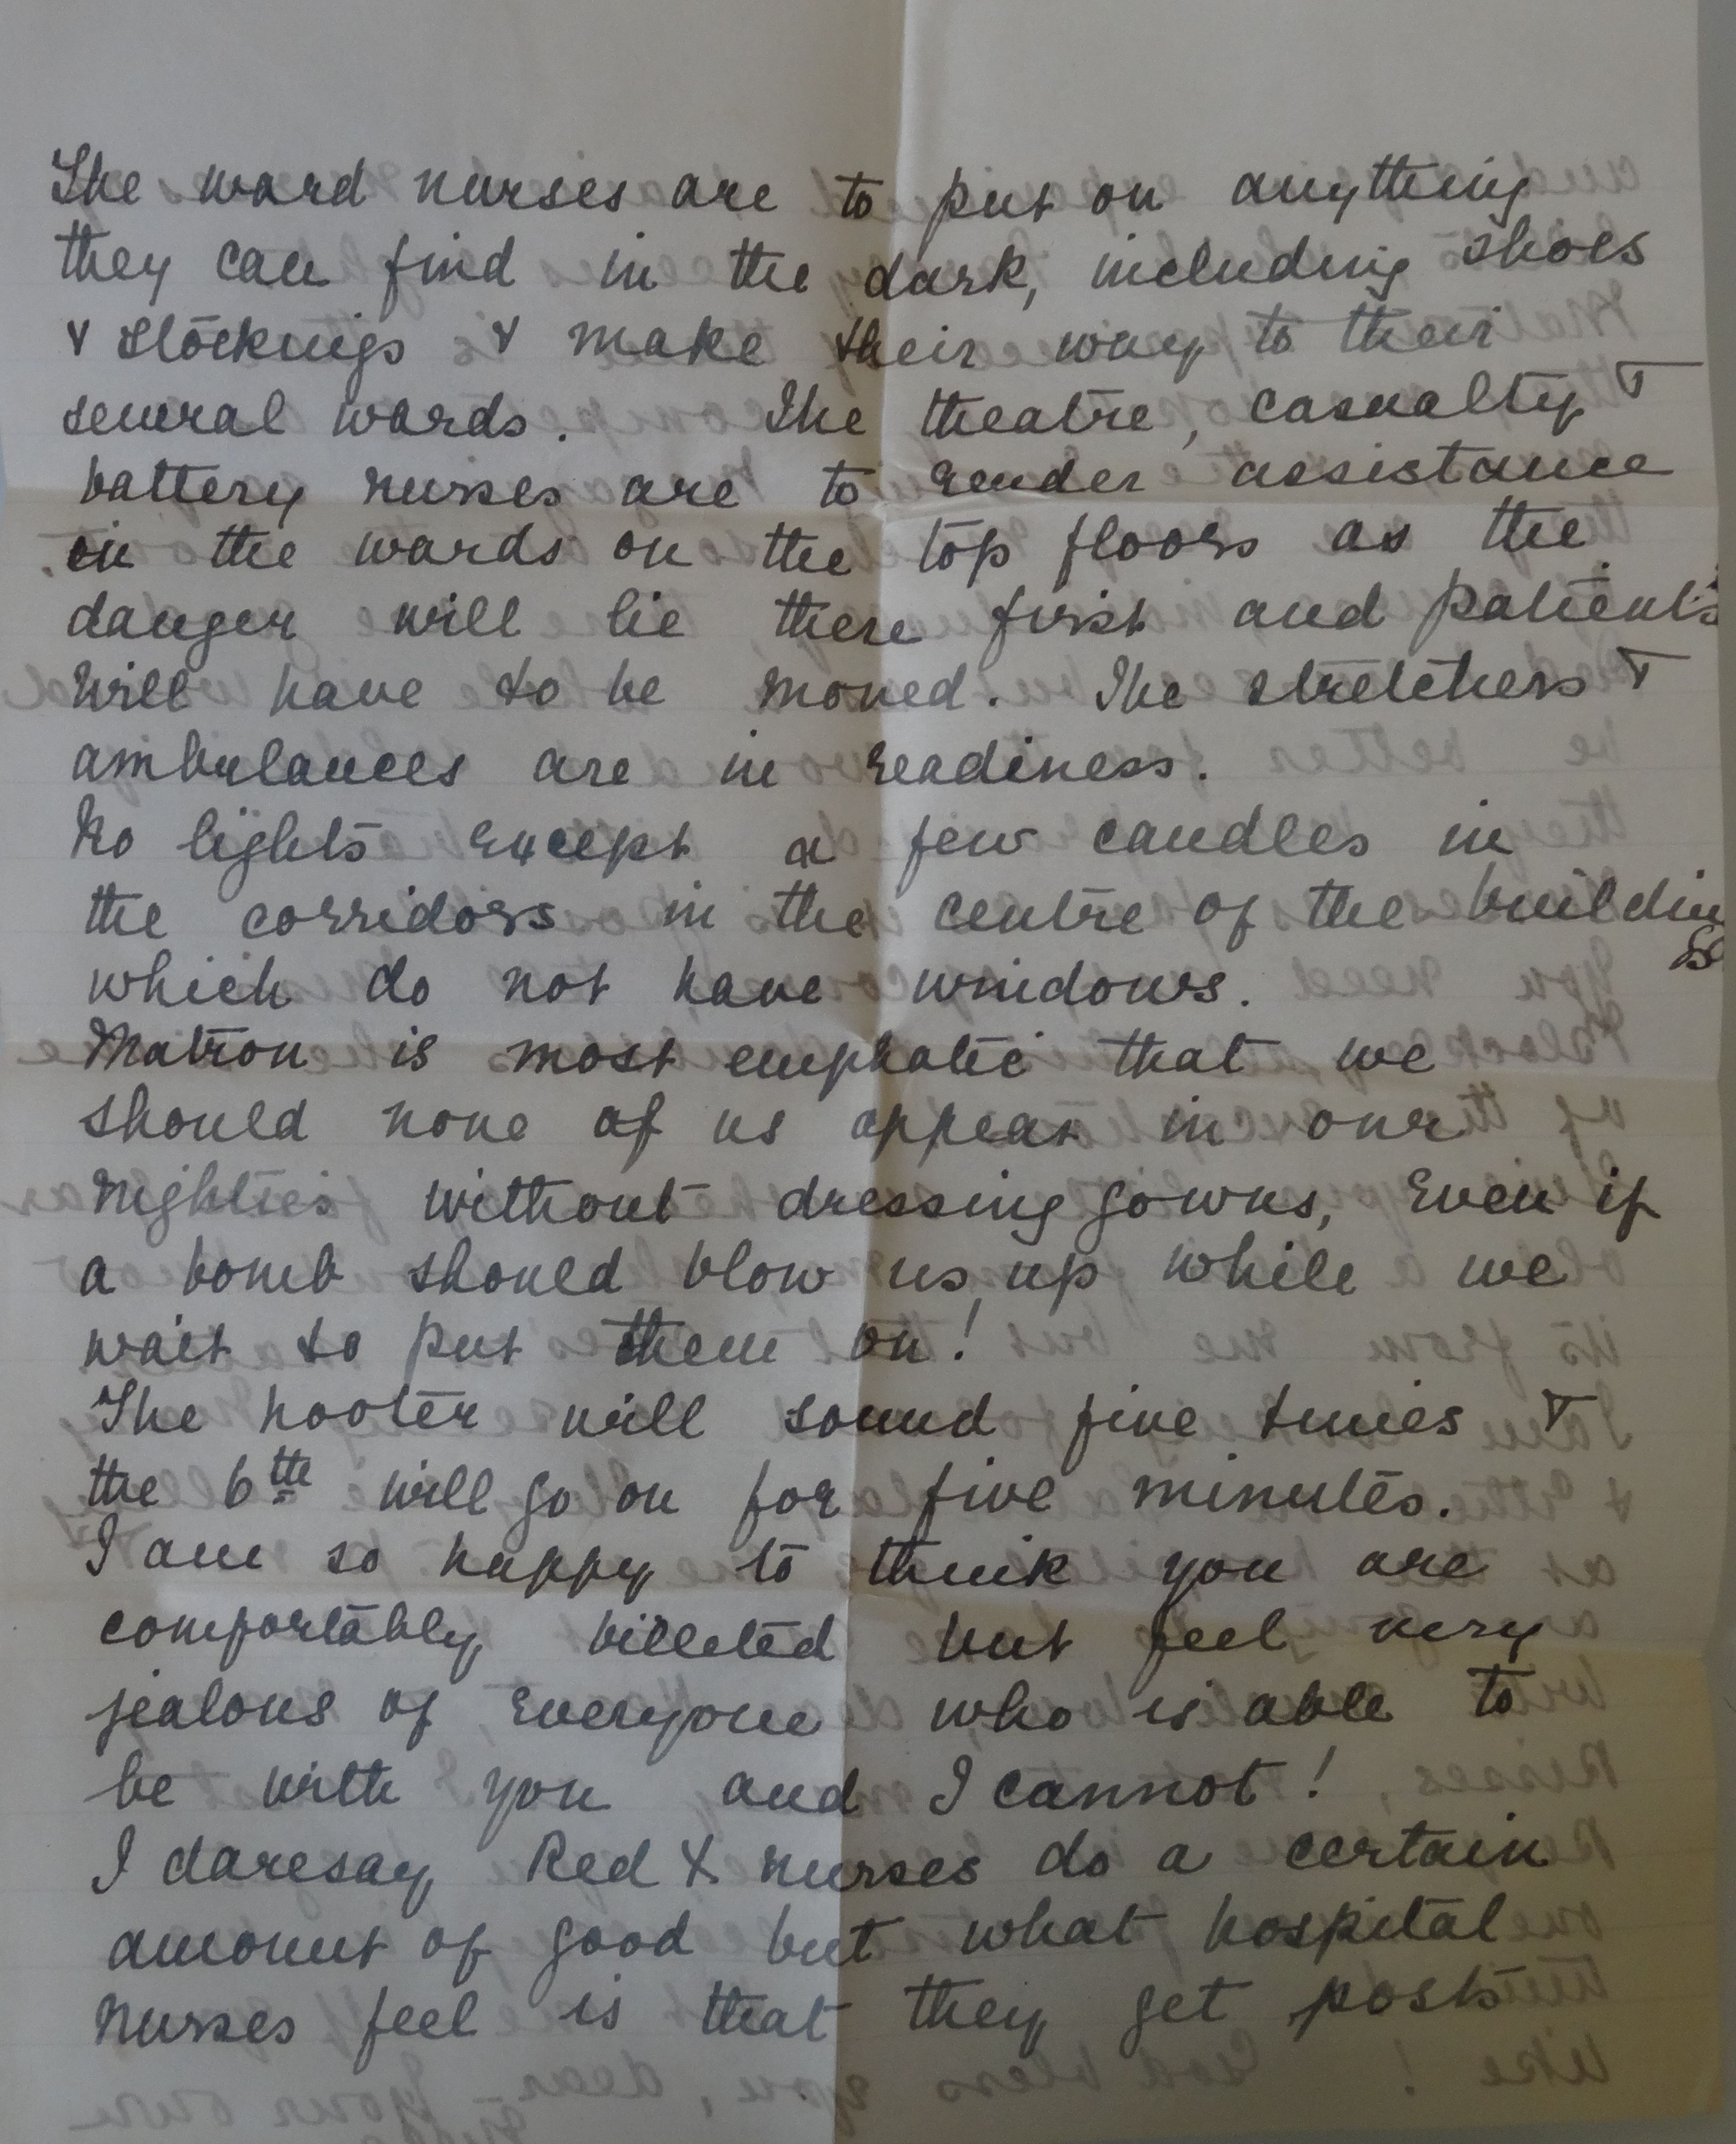 The ward nurses are to put on anything
they can find in the dark, including shoes
& stockings & make their way to their
several wards. The theatre, casualty &
battery nurses are to render assistance
in the wards on the top floors as the
danger will lie there first and patients
will have to be moved. The stretchers &
ambulances are in readiness.
No lights except a few candles in
the corridors in the centre of the building
which do not have windows.
Matron is most emphatic that we
should none of us appear in our
nighties without dressing gowns, even if
a bomb should blow us up while we
wait to put them on!
The hooter will sound five times &
the 6th will go on for five minutes.
I am so happy to think you are
comfortably billeted but feel very
jealous of everyone who is able to
be with you and I cannot!
I daresay Red X nurses do a certain
amount of good but what hospital
nurses feel is that they get posts